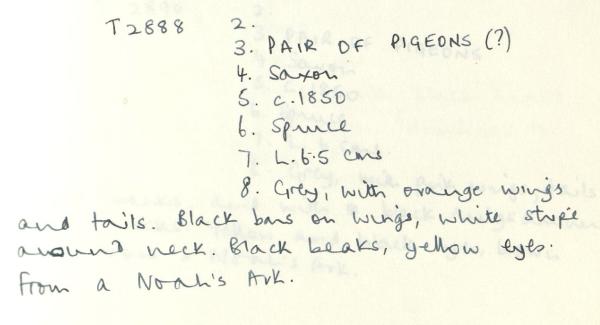 T2888 2.
3. PAIR OF PIGEONS (?)
4. Saxon
5. c.1850
6. Spruce
7. L. 6.5 cms
8. Grey, with orange wings
and tails. Black bars on wings, white stripe
around neck. Black beaks, yellow eyes.
From a Noah's Ark.